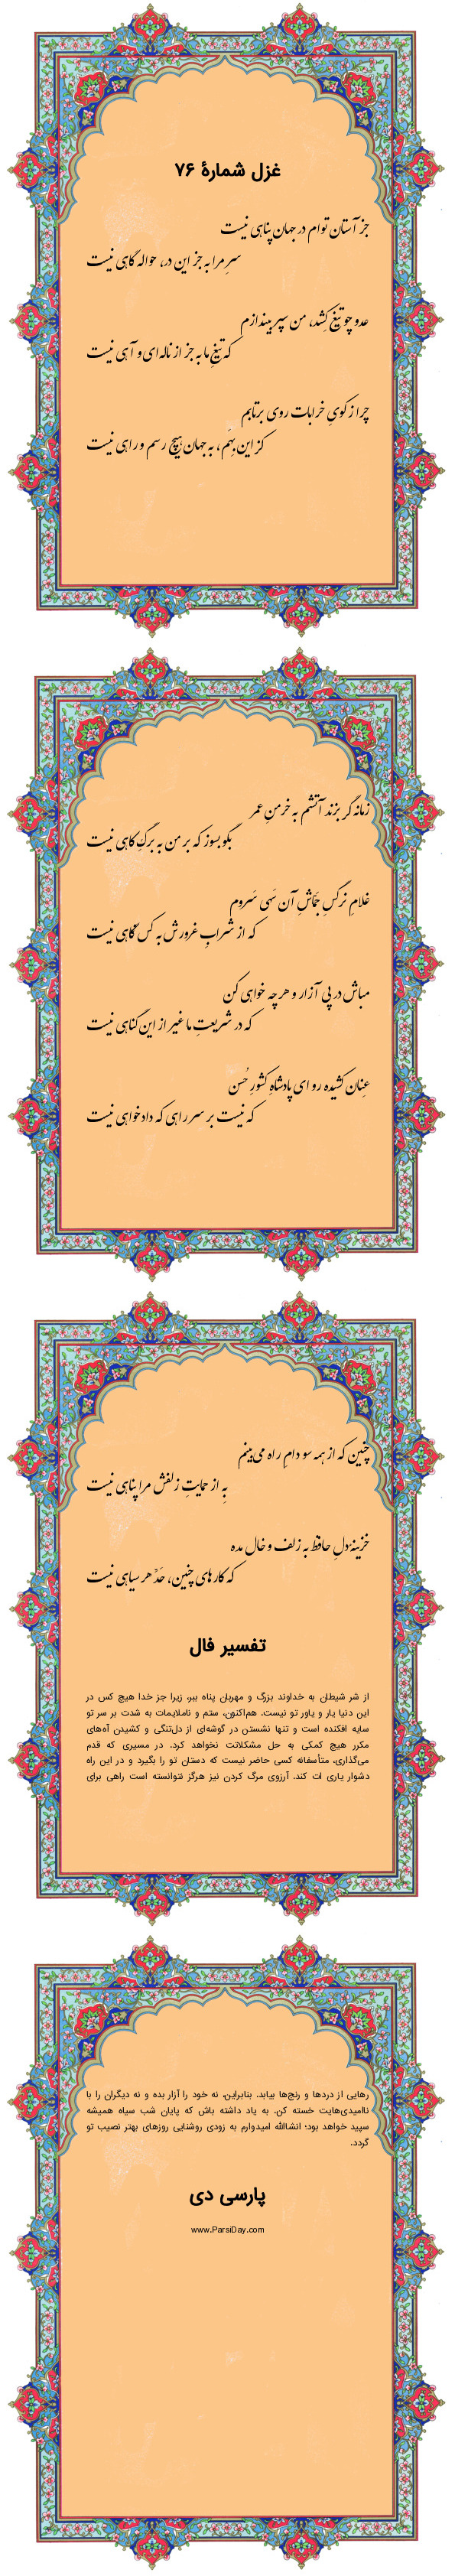 غزل شمارهٔ ۷۶
جز آستان توام در جهان پناهی نیست
سرِ مرا به جز این در، حواله گاهی نیست
عدو چو تیغ کِشد، من سپر بیندازم
که تیغِ ما به جز از ناله‌ای و آهی نیست
چرا ز کویِ خرابات روی برتابم
کز این بِهَم، به جهان هیچ رسم و راهی نیست
زمانه گر بزند آتشم به خرمنِ عمر
بگو بسوز که بر من به برگِ کاهی نیست
غلامِ نرگسِ جَمّاشِ آن سَهی سَروم
که از شرابِ غرورش به کس نگاهی نیست
مباش در پی آزار و هر چه خواهی کن
که در شریعتِ ما غیر از این گناهی نیست
عِنان کشیده رو ای پادشاهِ کشورِ حُسن
که نیست بر سر راهی که دادخواهی نیست
چنین که از همه سو دامِ راه می‌بینم
بِه از حمایتِ زلفش مرا پناهی نیست
خزینهٔ دلِ حافظ به زلف و خال مده
که کارهای چنین، حَدِّ هر سیاهی نیست
تفسیر فال
از شر شیطان به خداوند بزرگ و مهربان پناه ببر، زیرا جز خدا هیچ کس در
این دنیا یار و یاور تو نیست. هم‌اکنون، ستم و ناملایمات به شدت بر سر تو
سایه افکنده است و تنها نشستن در گوشه‌ای از دل‌تنگی و کشیدن آه‌های
مکرر هیچ کمکی به حل مشکلاتت نخواهد کرد. در مسیری که قدم
می‌گذاری، متأسفانه کسی حاضر نیست که دستان تو را بگیرد و در این راه
دشوار یاری ات کند. آرزوی مرگ کردن نیز هرگز نتوانسته است راهی برای
رهایی از دردها و رنج‌ها بیابد. بنابراین، نه خود را آزار بده و نه دیگران را با
ناامیدی‌هایت خسته کن. به یاد داشته باش که پایان شب سیاه همیشه
سپید خواهد بود؛ انشاالله امیدوارم به زودی روشنایی روزهای بهتر نصیب تو
گردد.
پارسی دی
www.ParsiDay.com